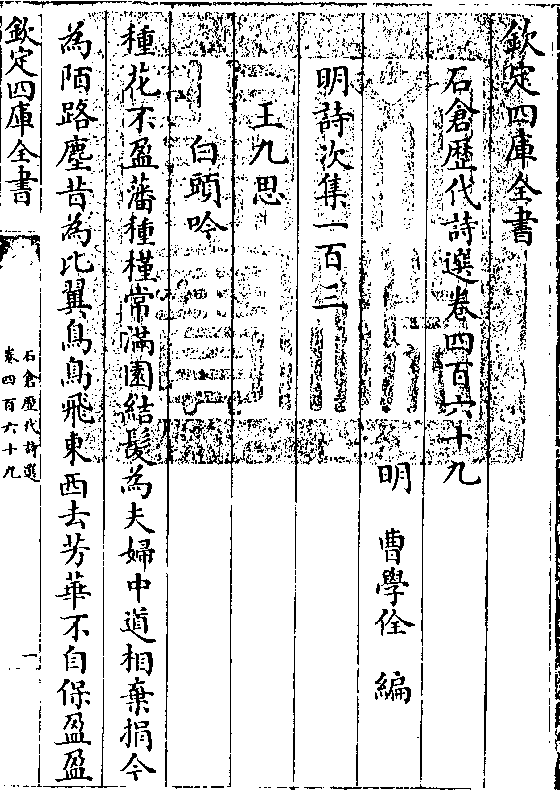 欽定四庫全書
石倉歷代詩選卷四百六十九
明　曹學佺　編
明詩次集一百三
王九思
白頭吟
種花不盈藩種槿常滿園結髮為夫婦中道相棄捐今
為陌路塵昔為比翼鳥鳥飛東西去芳華不自保盈盈
欽定四庫全書
石倉歷代詩選
卷四百六十九
一